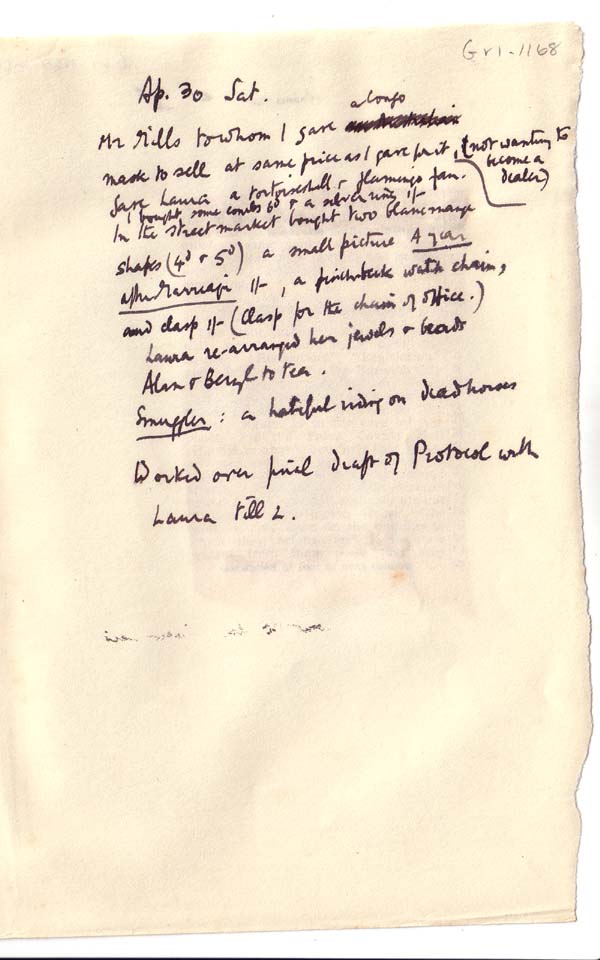 Gr1-1168
Ap. 30 Sat.
a Congo
Mr Mills to whom I gave
mask to sell at same price as I gave for it, (not wanting to
become a
dealer)
Gave Laura a tortoiseshell & flamingo fan.
I bought some combs 6d & a silver ring 1/-
In the street market bought two blancmange
shapes (4d & 5d) a small picture A year
after Marriage 1/-, a pinchbeck watch chain,
and clasp 1/- (Clasp for the chain of office.)
Laura re-arranged her jewels & beads
Alan & Beryl to tea.
Smuggler: a hateful riding on dead horses
Worked over final draft of Protocol with
Laura till 2.